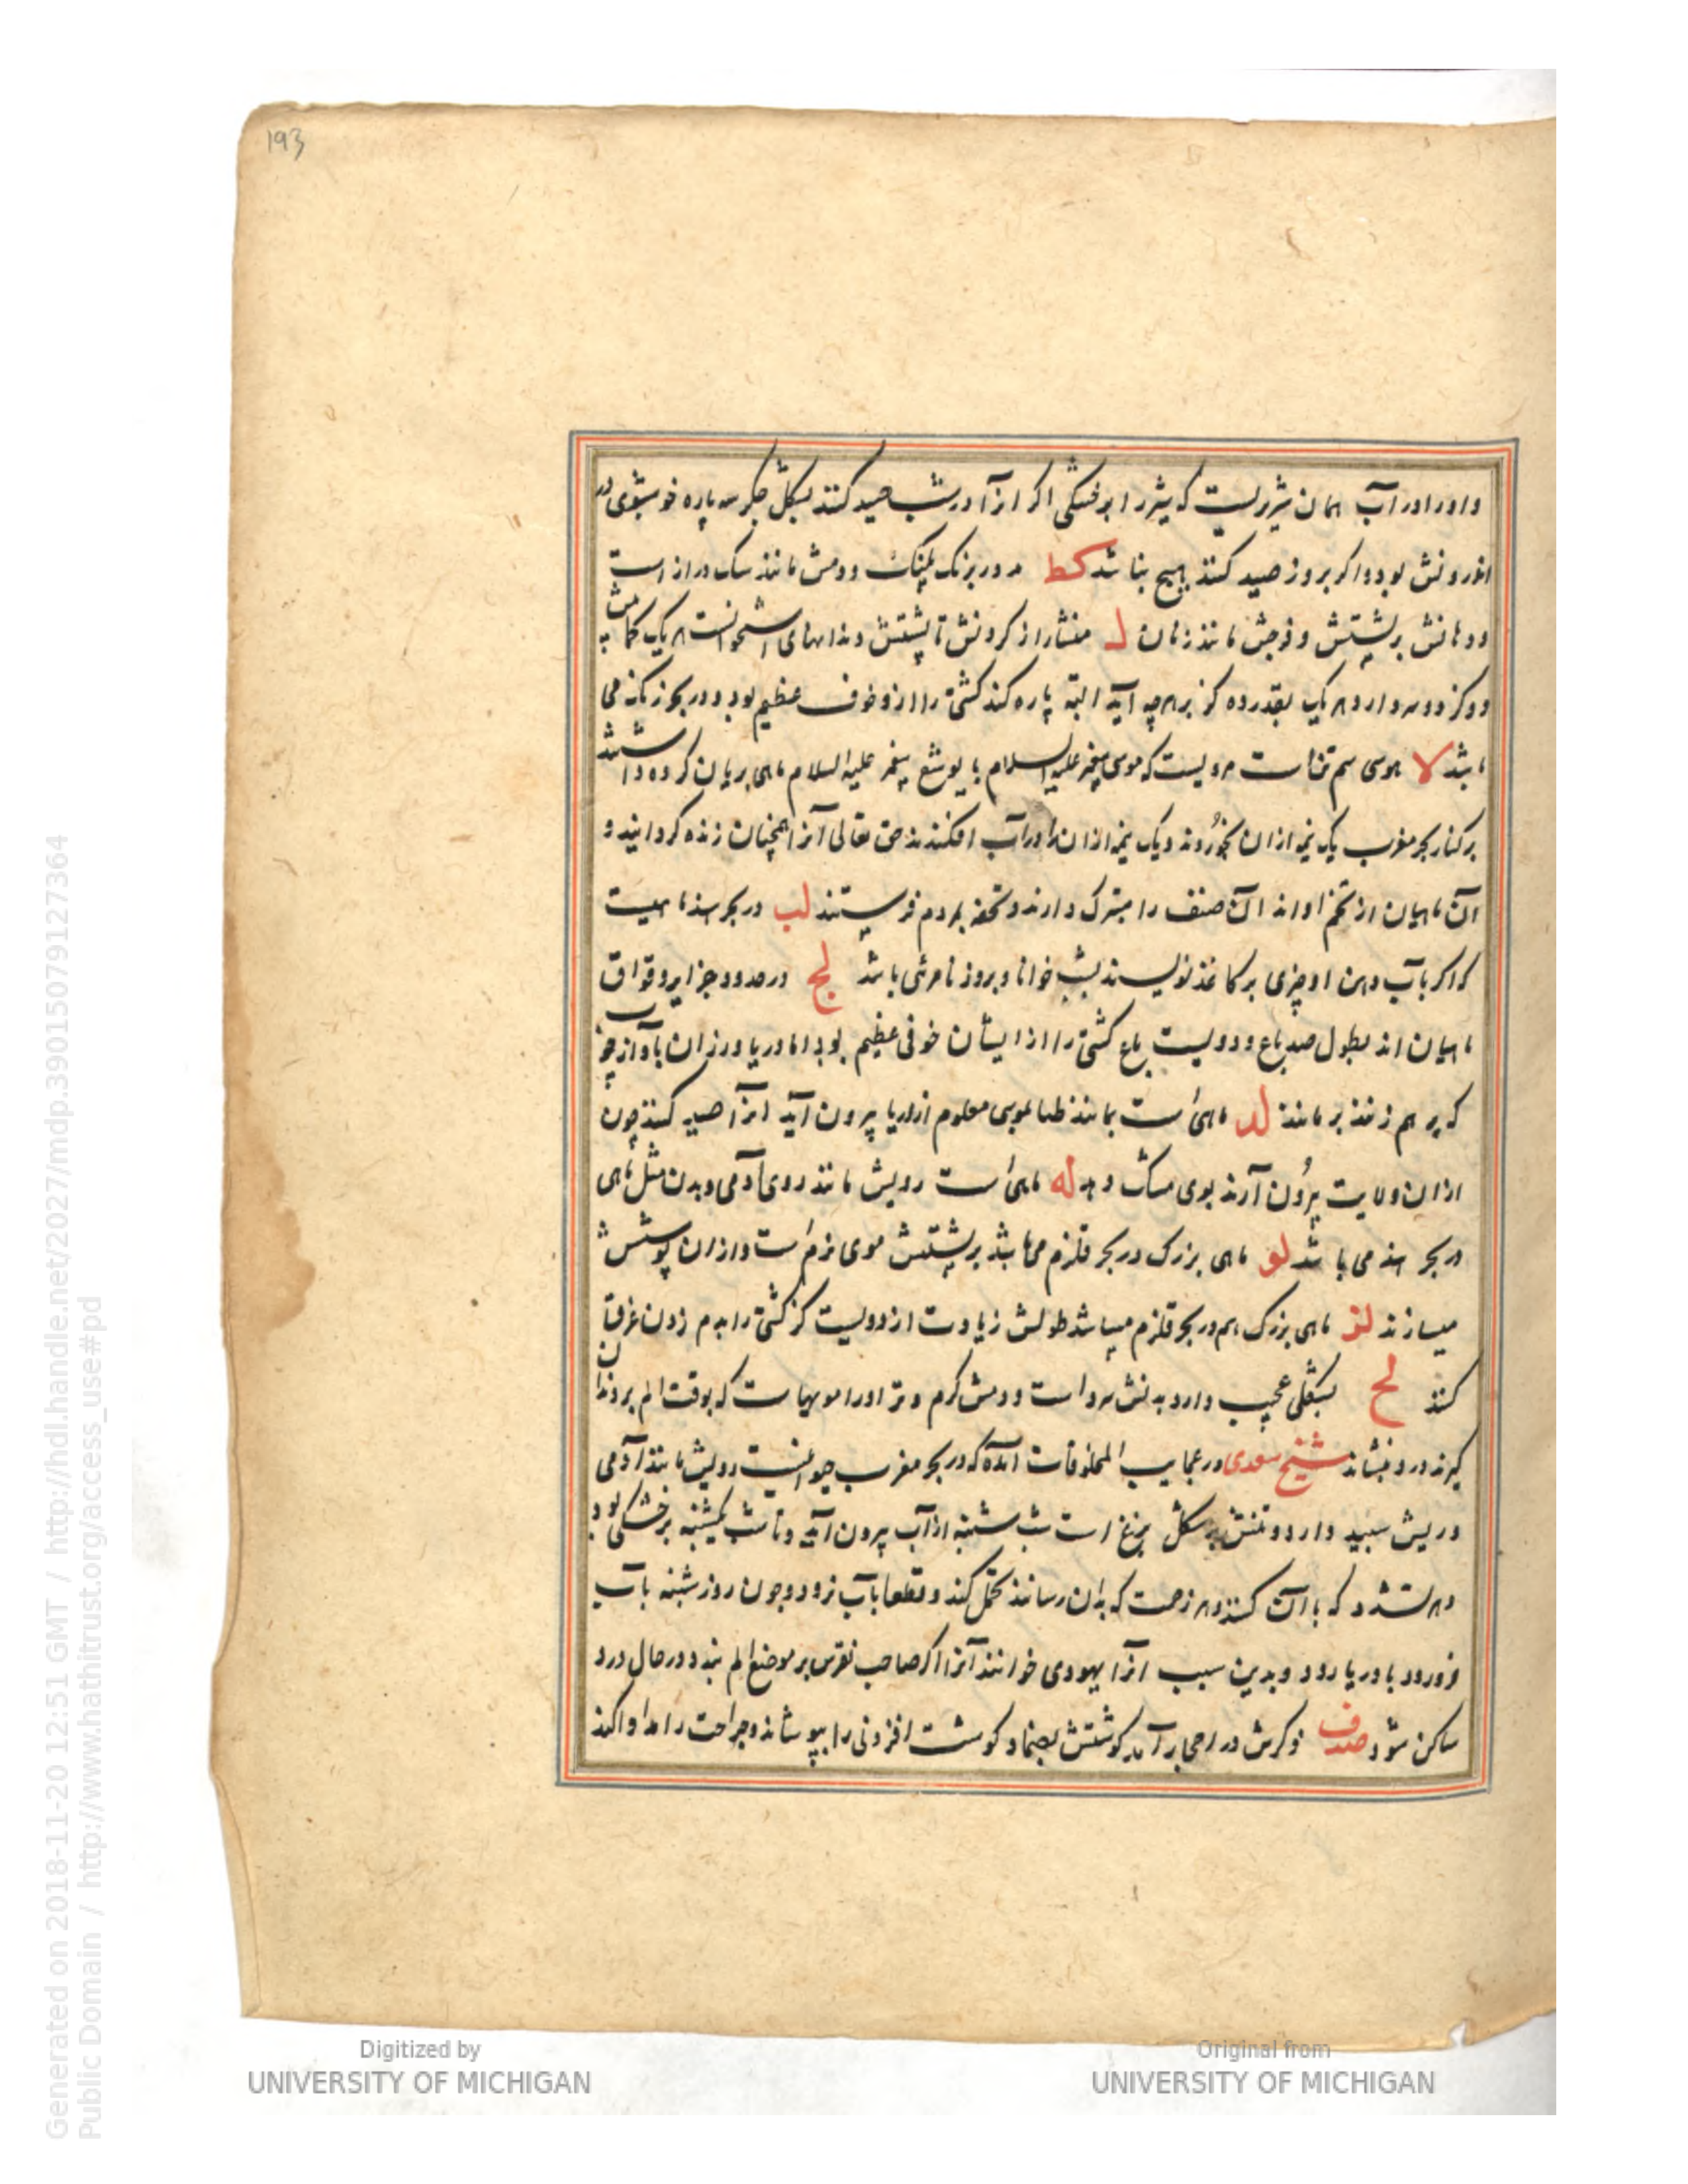 193
و او را در آب همان شرریست که شیر را بر خشکی اگر از آ در شب صید کنند بشکل جگر سه پاره خوشبوی در
اندرونش بود و اگر بروز صید کنند هیچ نباشد کط مدور برنک پلنک و دمش مانند سک دراز است
و دهانش بر پشتش و فرجش مانند زنان ل منشار از کردنش تا پشتش دندانهای استخوانست هر یک کمابیش
دو کز و دو سر دارد هر یک بقدر ده کز بر هر چه آید البته پاره کند کشتی را ازو خوف عظیم بود و در بحر زنک می
باشد لا موسی سم قناست مرویست که موسی پیغمبر علیه السلام با یوشع پیغمبر علیه السلام ماهی بریان کرده داشتند
بر کنار بحر مغرب یک نیمه از ان بخوردند و یک نیمه از ان را در آب افکندند حق تعالی آنرا همچنان زنده کردانید و
آن ماهیان از تخم او اند آن صنف را متبرک دارند و تحفه بمردم فرستند لب در بحر هند ماهیست
که اکر بآب دهن او چیزی بر کاغذ نویسند بشب خوانا و بروز نامرئی باشد لج در حدود جزایر وقواق
ماهیان اند بطول صد باع و دویست باع کشتی را از ایشان خوفی عظیم بود اما دریا ورزان بآواز چوب
که بر هم زنند برمانند لد ماهی است بمانند طباموسی معلوم از دریا بیرون آید انرا صید کنند چون
از ان ولایت بیرون آرند بوی مشک دهد له ماهی است رویش مانند روی آدمی و بدن مثل ماهی
در بحر هند می باشد لو ماهی بزرک در بحر قلزم می باشد بر پشتش موی نرم است و از ان پوشش
میسازند لز ماهی بزرک هم در بحر قلزم میباشد طولش زیادت از دویست کز کشتی را بدم زدن غرق
کنند لح بشکلی عجیب دارد بدنش سرد است و دمش کرم و تر او را مویهاست که بوقت الم بر دندان
کیرند درد بنشاند شیخ سعدی در عجایب المخلوقات آمده که در بحر مغرب حیوانیست رویش مانند آدمی
و ریش سپید دارد و تنش بر شکل برغ است شب شنبه از آب بیرون آید و تا شب یکشنبه بر خشکی بود
و هر تشدد که با آن کنند و هر زحمت که بدان رسانند تحمل کند و قطعا بآب نرود و چون روز شنبه بآب
فرو رود با دریا رود و بدین سبب انرا یهودی خوانند آنرا اکر صاحب نقرس بر موضع الم بندد در حال درد
ساکن شود صدف ذکرش در احجار آمد کوشتش بضماد کوشت افزونی را بپوشاند و جراحت را مداوا کند
Digitized by
UNIVERSITY OF MICHIGAN
Original from
UNIVERSITY OF MICHIGAN
Generated on 2018-11-20 12:51 GMT / http://hdl.handle.net/2027/mdp.39015079127364
Public Domain / http://www.hathitrust.org/access_use#pd